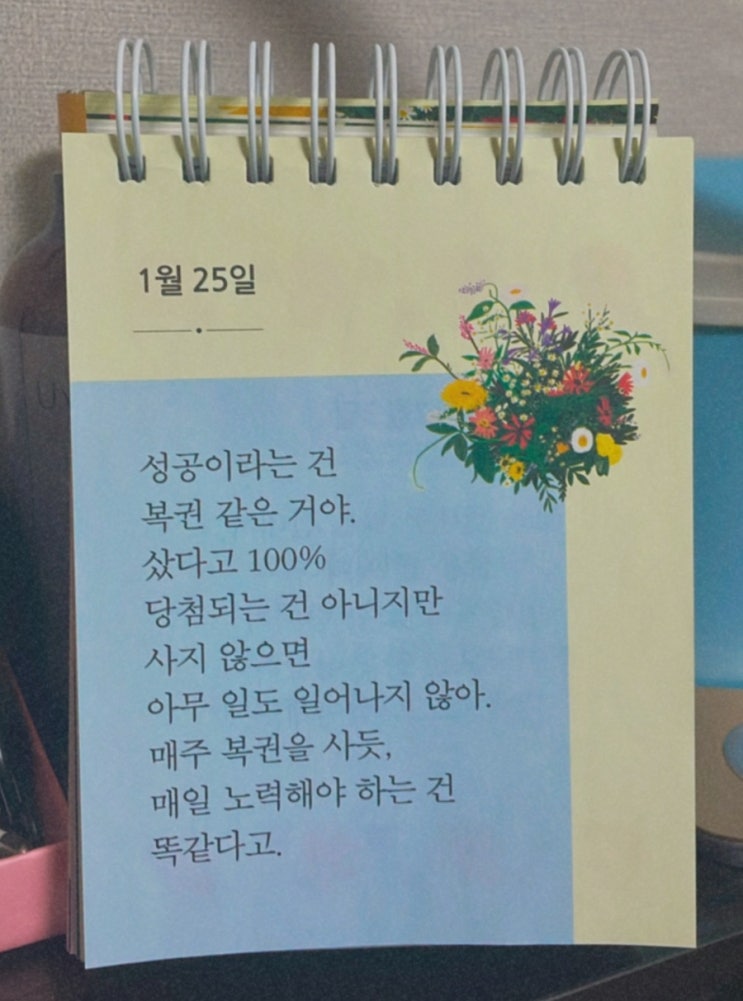 1월 25일
성공이라는 건
복권 같은 거야.
샀다고 100%
당첨되는 건 아니지만
사지 않으면
아무 일도 일어나지 않아.
매주 복권을 사듯,
매일 노력해야 하는 건
똑같다고.